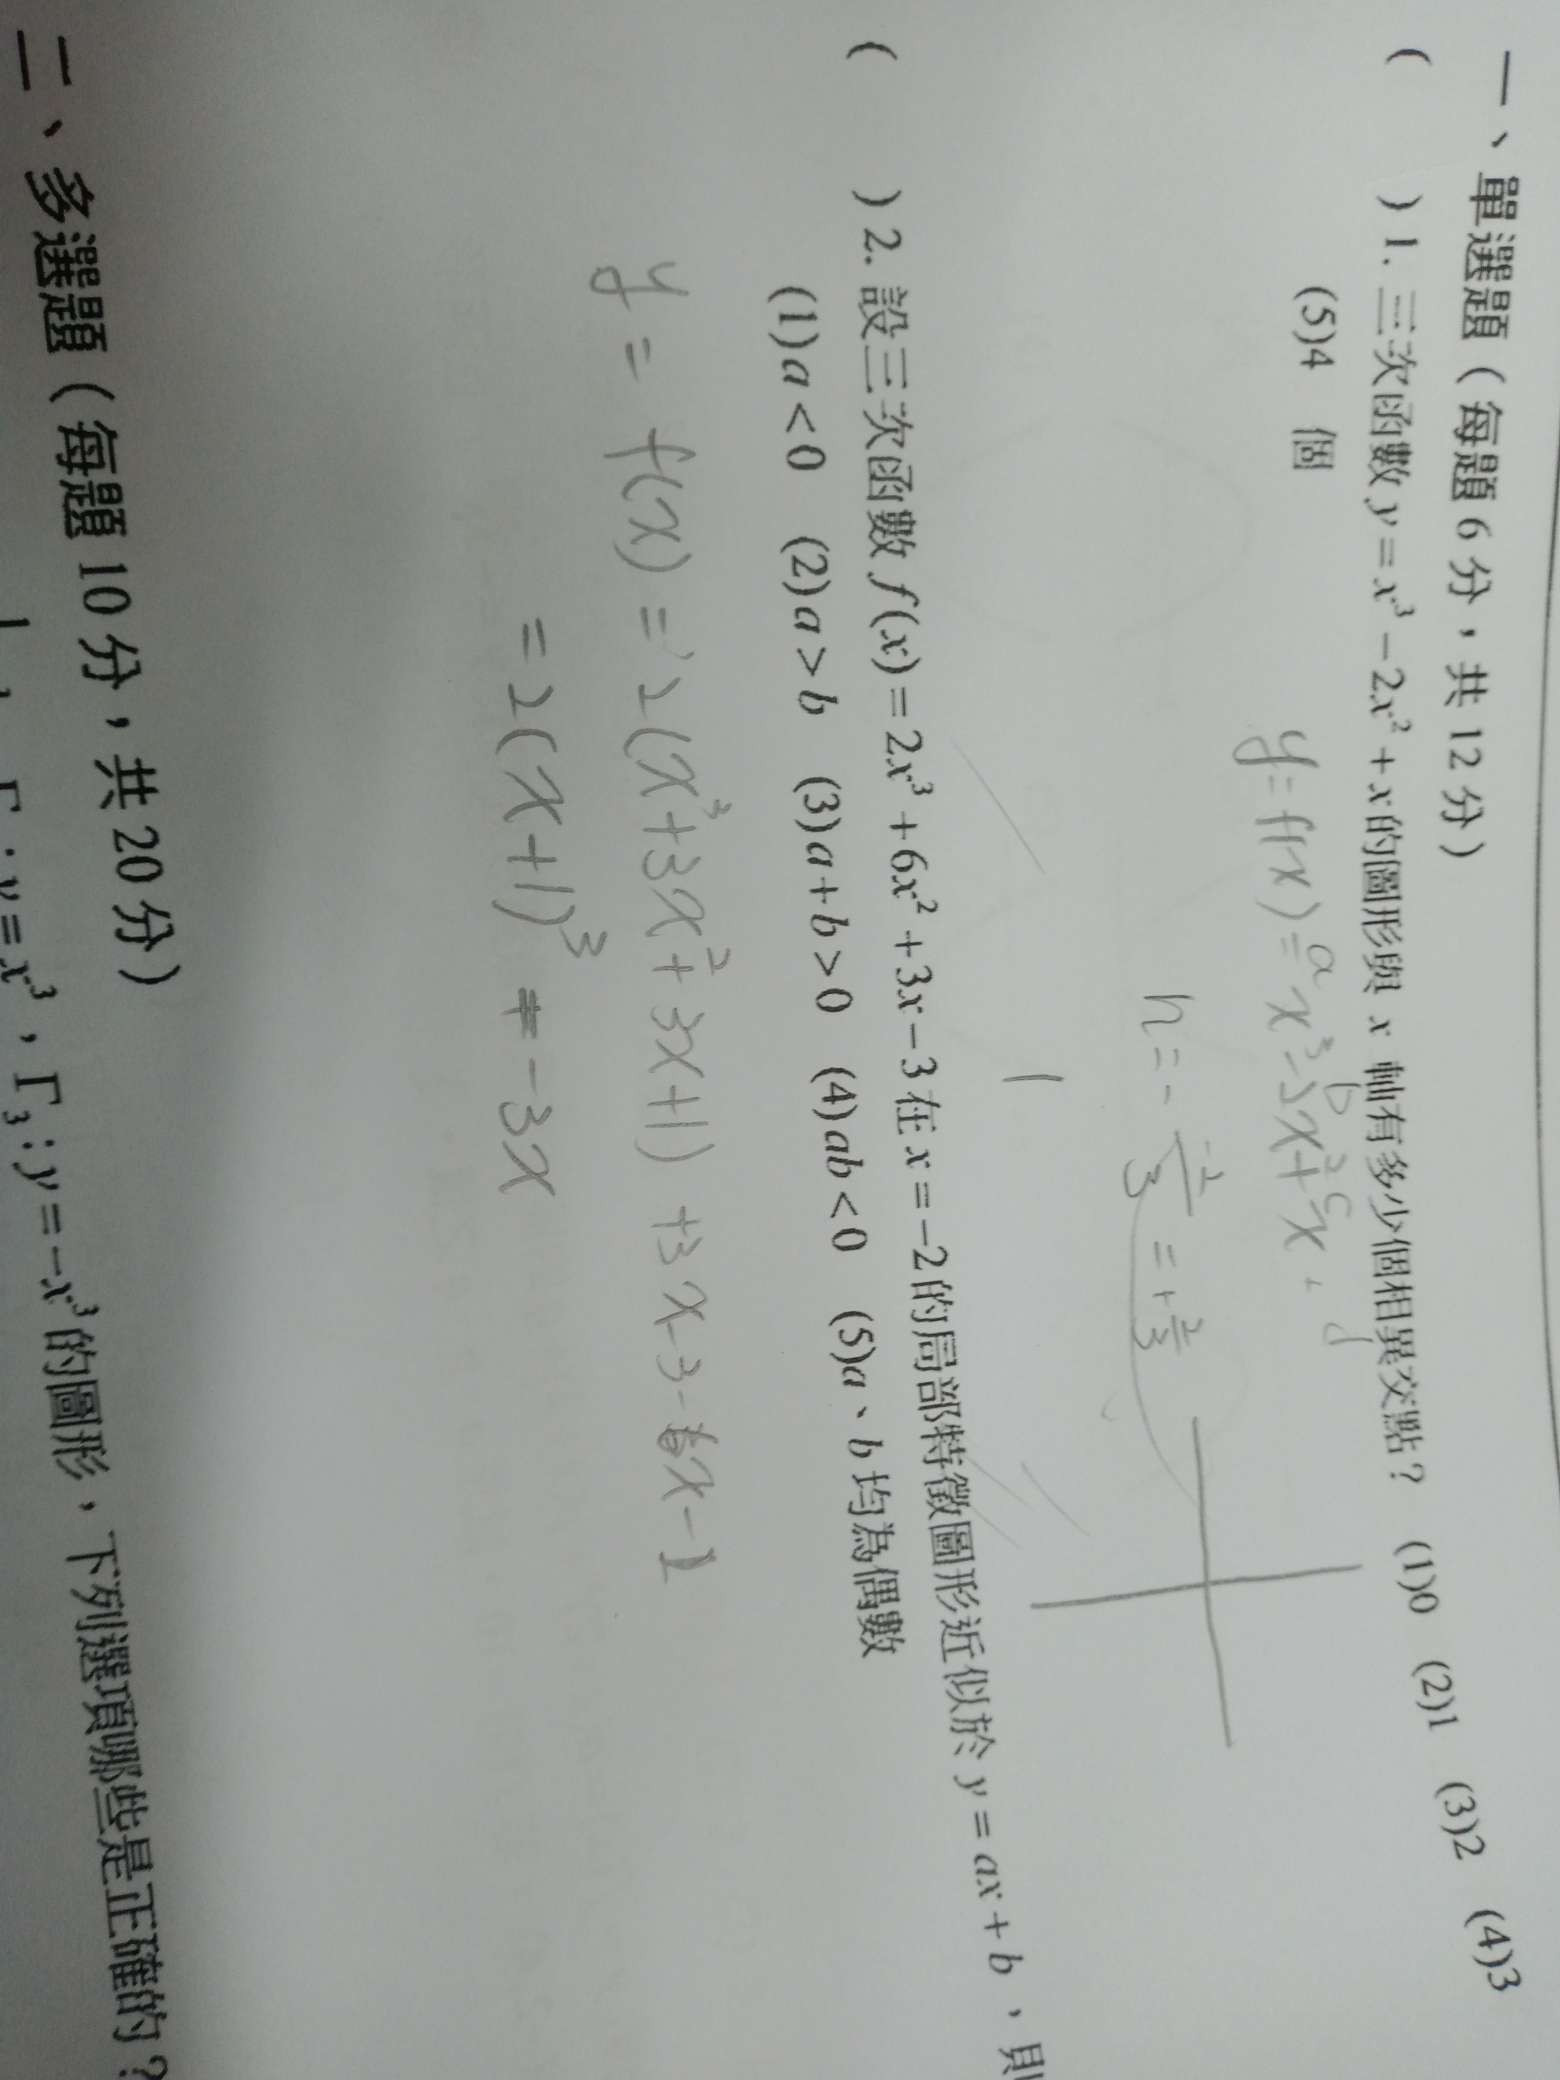 一、單選題(每題 6 分,共 12 分)
( ) 1. 三次函數 y = x³ − 2x² + x 的圖形與 x 軸有多少個相異交點? (1)0 (2)1 (3)2 (4)3
(5)4 個
y = f(x) = x³ − 2x² + x + d
a b c
h = − -2/3 = + 2/3
1
( ) 2. 設三次函數 f(x) = 2x³ + 6x² + 3x − 3 在 x = −2 的局部特徵圖形近似於 y = ax + b,則
(1)a < 0 (2)a > b (3)a + b > 0 (4)ab < 0 (5)a、b 均為偶數
y = f(x) = 2(x³ + 3x² + 3x + 1) + 3x − 3 − 6x − 1
= 2(x + 1)³ + −3x
二、多選題(每題 10 分,共 20 分)
: y = x³,Γ₃ : y = −x³ 的圖形,下列選項哪些是正確的?